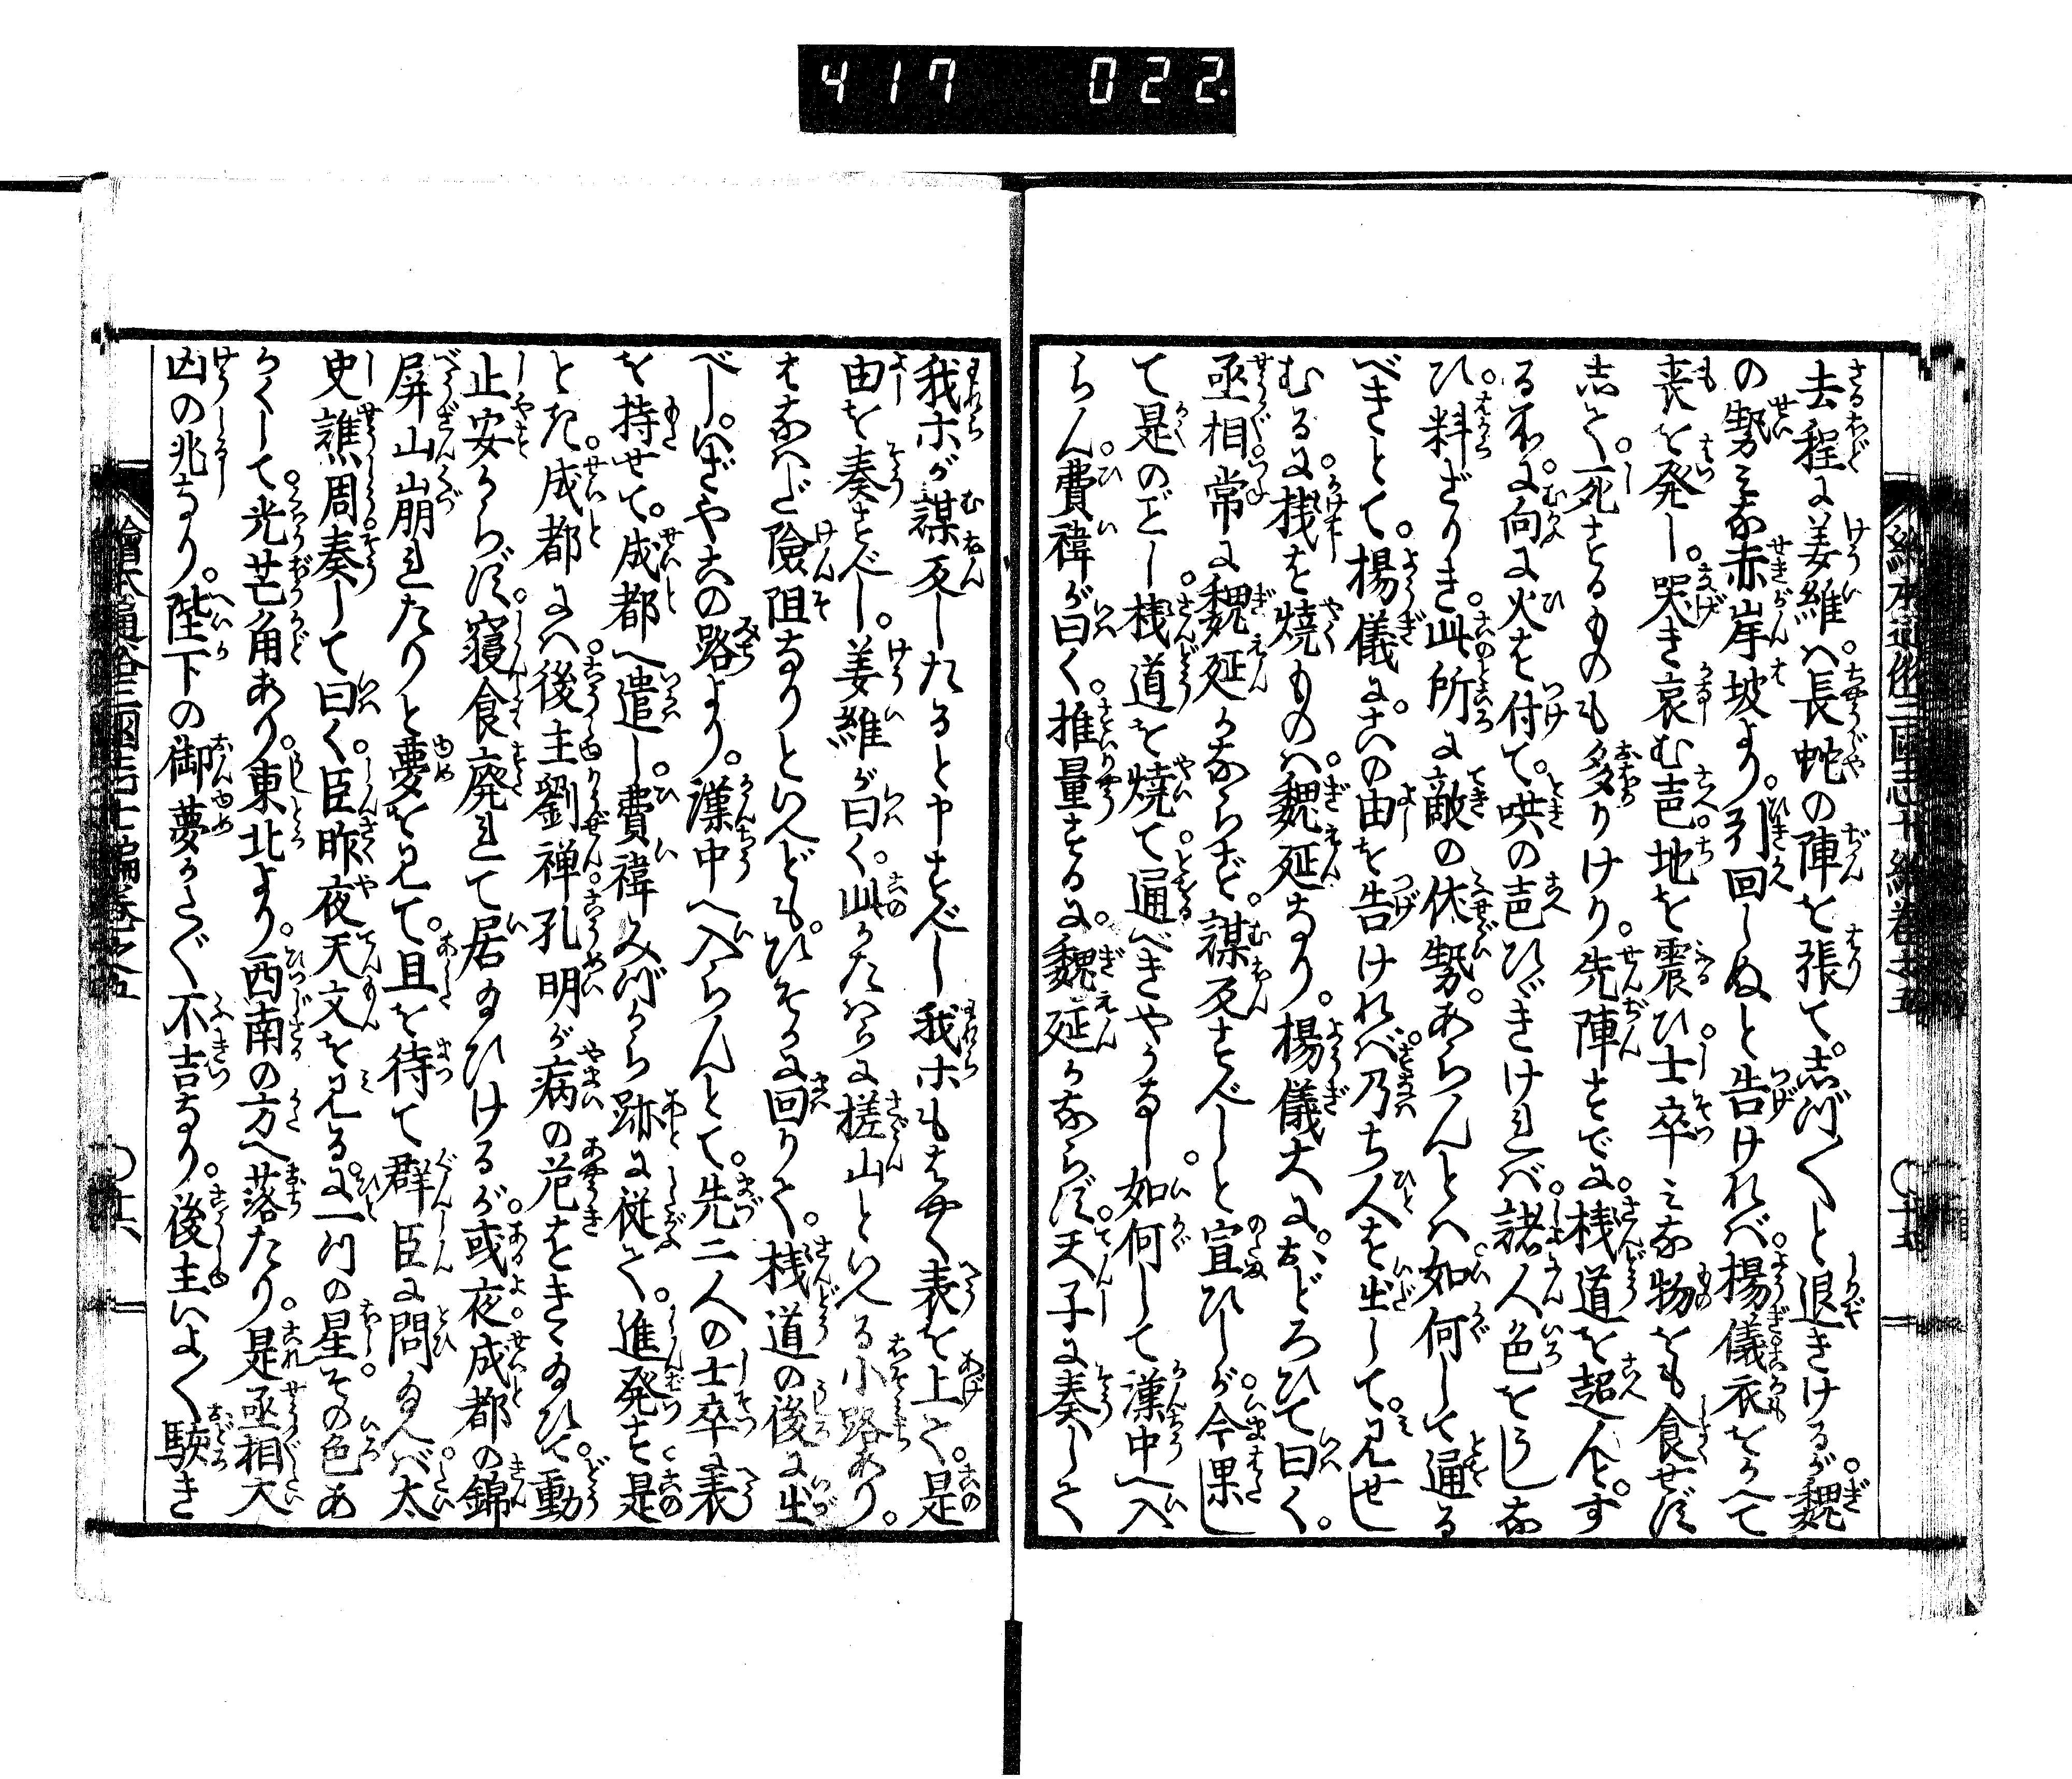 417 022.
去程に姜維ハ長蛇の陣を張て志づ〱と退きけるが魏
の勢ミな赤岸坡より引回しぬと告けれバ楊儀衣をかへて
喪を発し。哭き哀む声地を震ひ士卒ミな物をも食せず
志て死するものも多りけり。先陣すでに桟道を超んとす
る所に向に火を付て。哄の声ひゞきけれバ諸人色をうしな
ひ。料ざりき此所に敵の伏勢。あらんとハ如何して通る
べきとて。楊儀にこの由を告けれバ乃ち人を出して。見せし
むるに。桟を焼ものハ。魏延なり。楊儀大におどろひて曰く。
丞相常に魏延かならず。謀反すべしと宣ひしが今果し
て是のごとし桟道を焼て通べきやうなし如何して漢中へ入
らん。費禕が曰く。推量するに。魏延かならず天子に奏して
我ホが謀反したると申すべし我ホもはやく表を上て。是
由を奏すべし。姜維が曰く。此かたハらに槎山といへる小路あり。
けはなハだ険阻なりといへども。ひそかに回りて。桟道の後に出
べし。いざやこの路より。漢中へ入らんとて。先二人の士卒に表
を持せて。成都へ遣し。費禕みづから跡に従て。進発す是
とき成都にハ後主劉禅孔明が病の危をきゝ給ひて。動
止安からず。寝食廃れて居給ひけるが。或夜。成都の錦
屏山崩れたりと夢を見て。且を待て群臣に問給へバ太
史譙周奏して曰く。臣昨夜天文を見るに。一ツの星その色あ
かくして光芒角あり。東北より。西南の方へ落たり。是丞相大
凶の兆なり。陛下の御夢かた〲不吉なり。後主いよ〱駭き
繪本通俗三國志七編巻之五